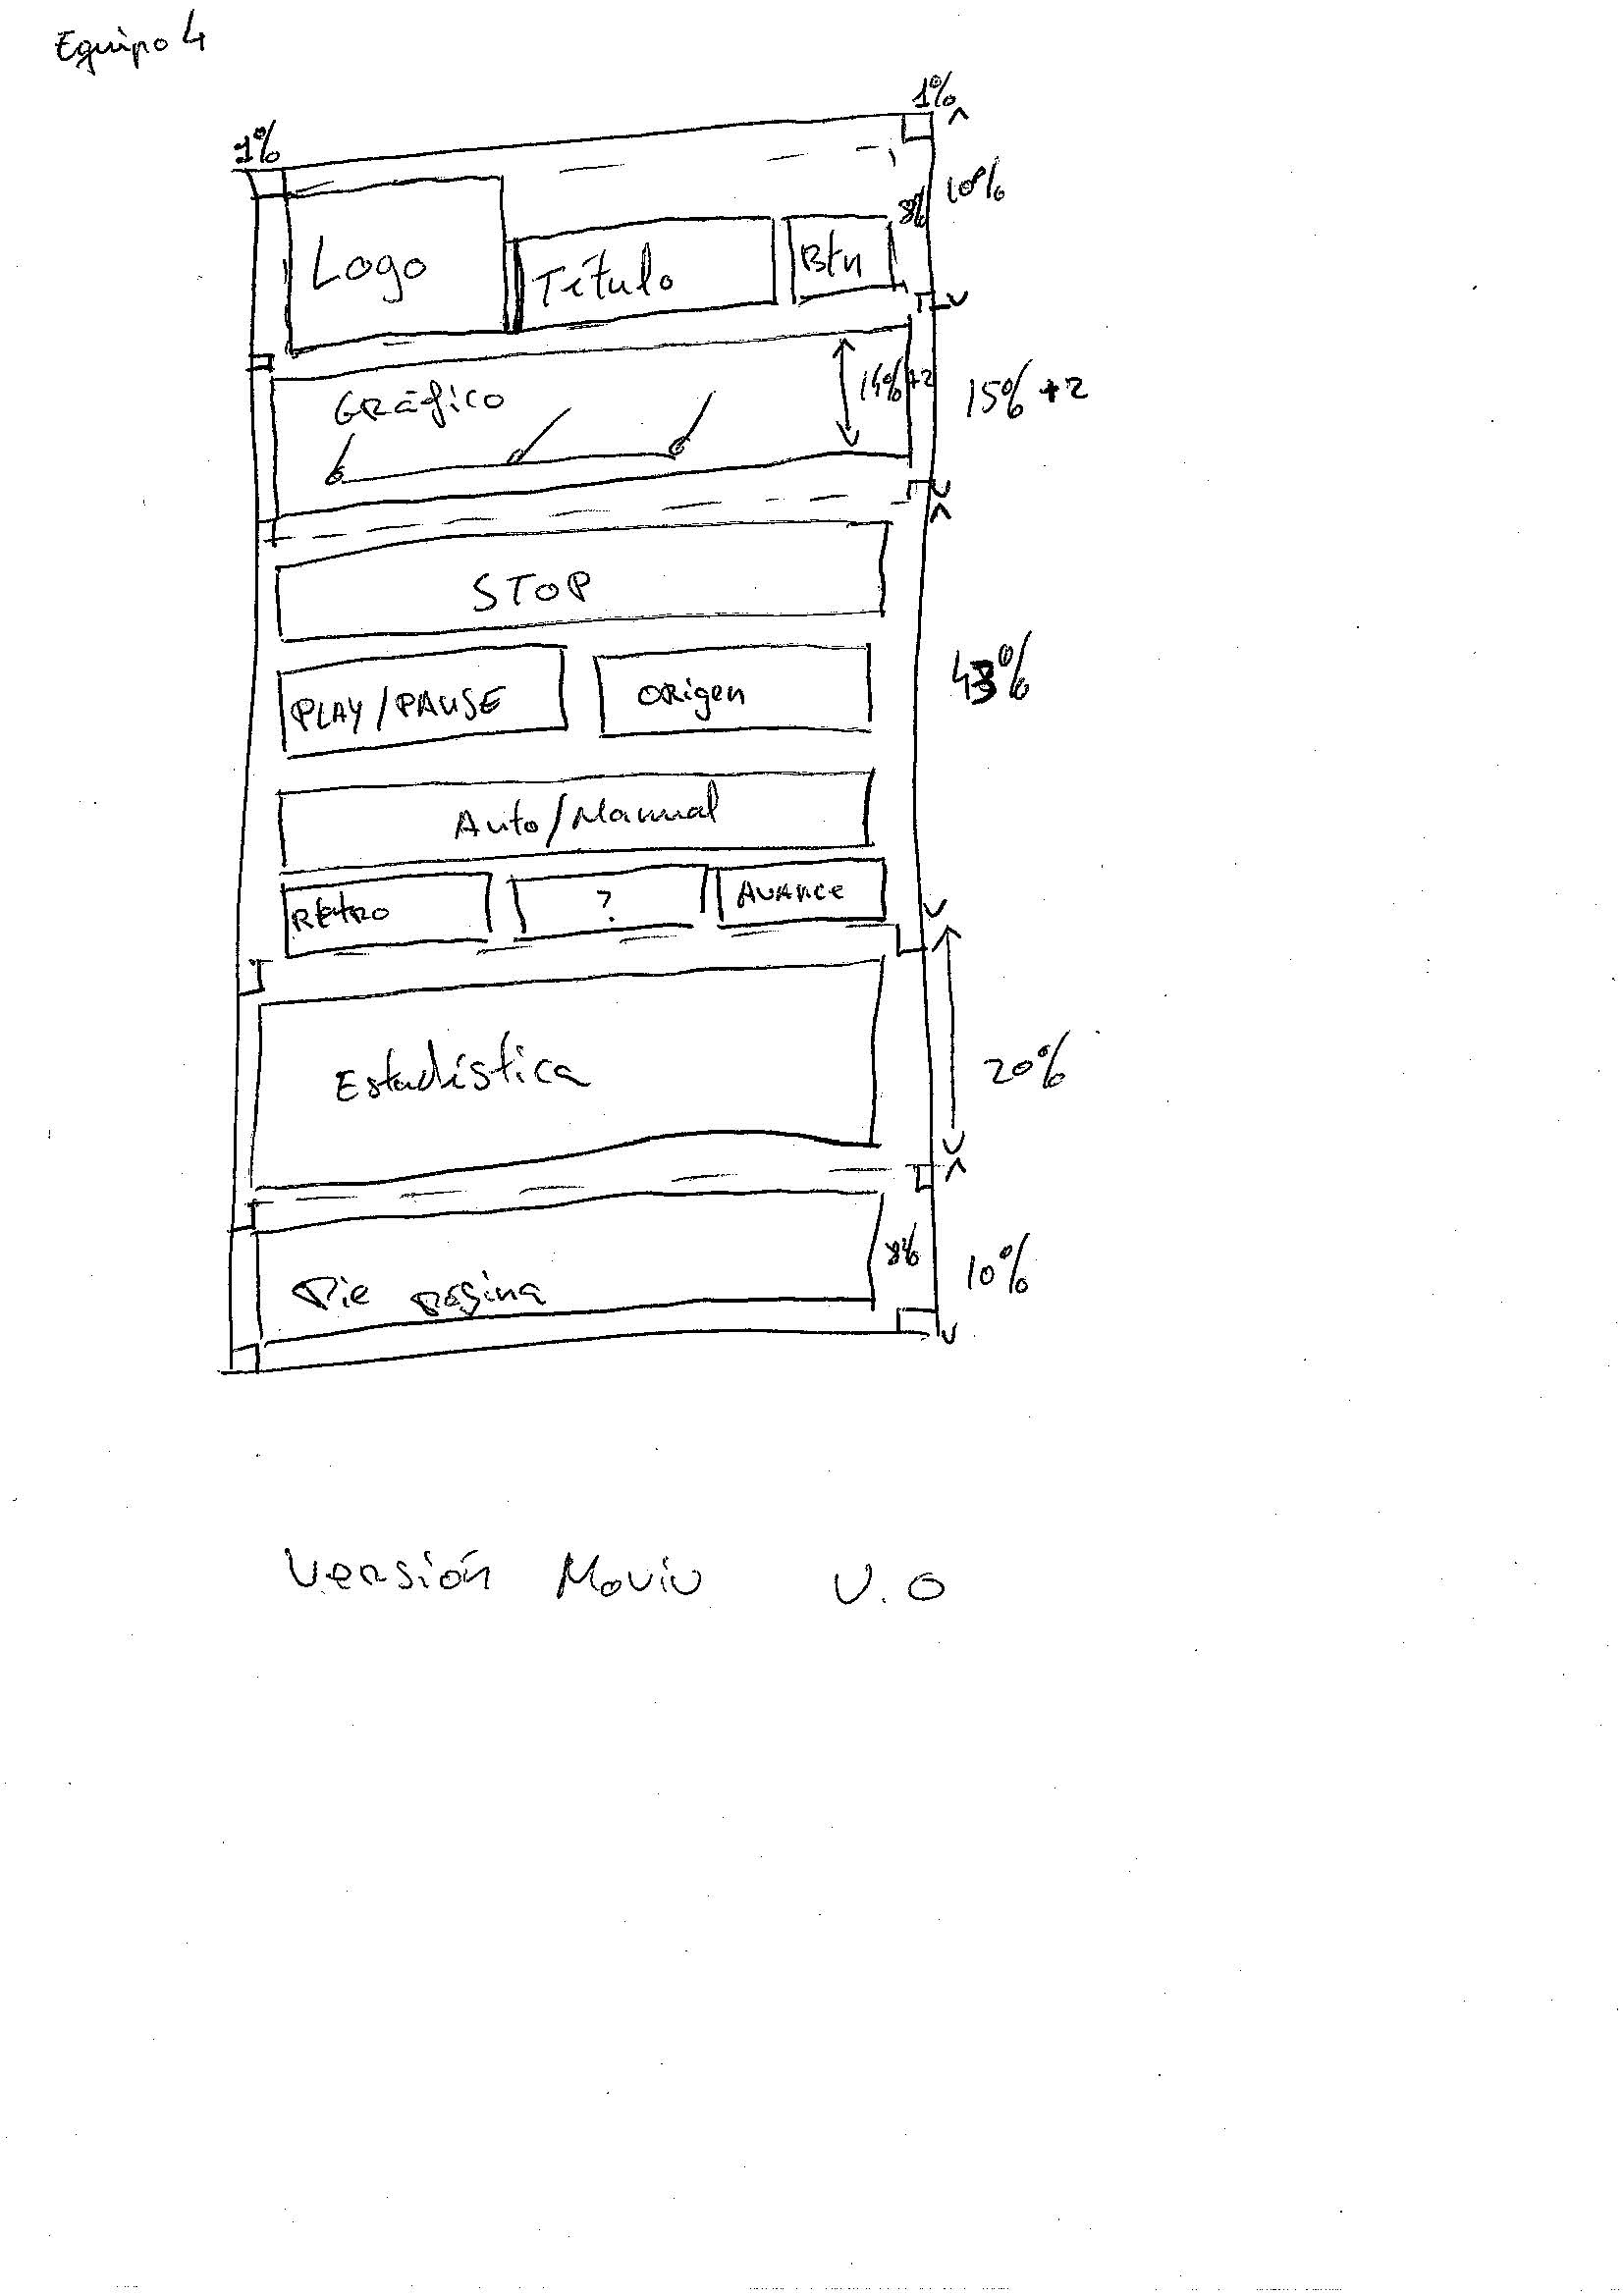 Equipo 4
1%
1%
10%
8%
Logo
Título
Btn
Gráfico
14%+2
15% +2
STOP
PLAY/PAUSE
ORigen
43%
Auto/Manual
RETRO
?
AVANCE
Estadística
20%
Pie página
8%
10%
Versión Moviu V.0